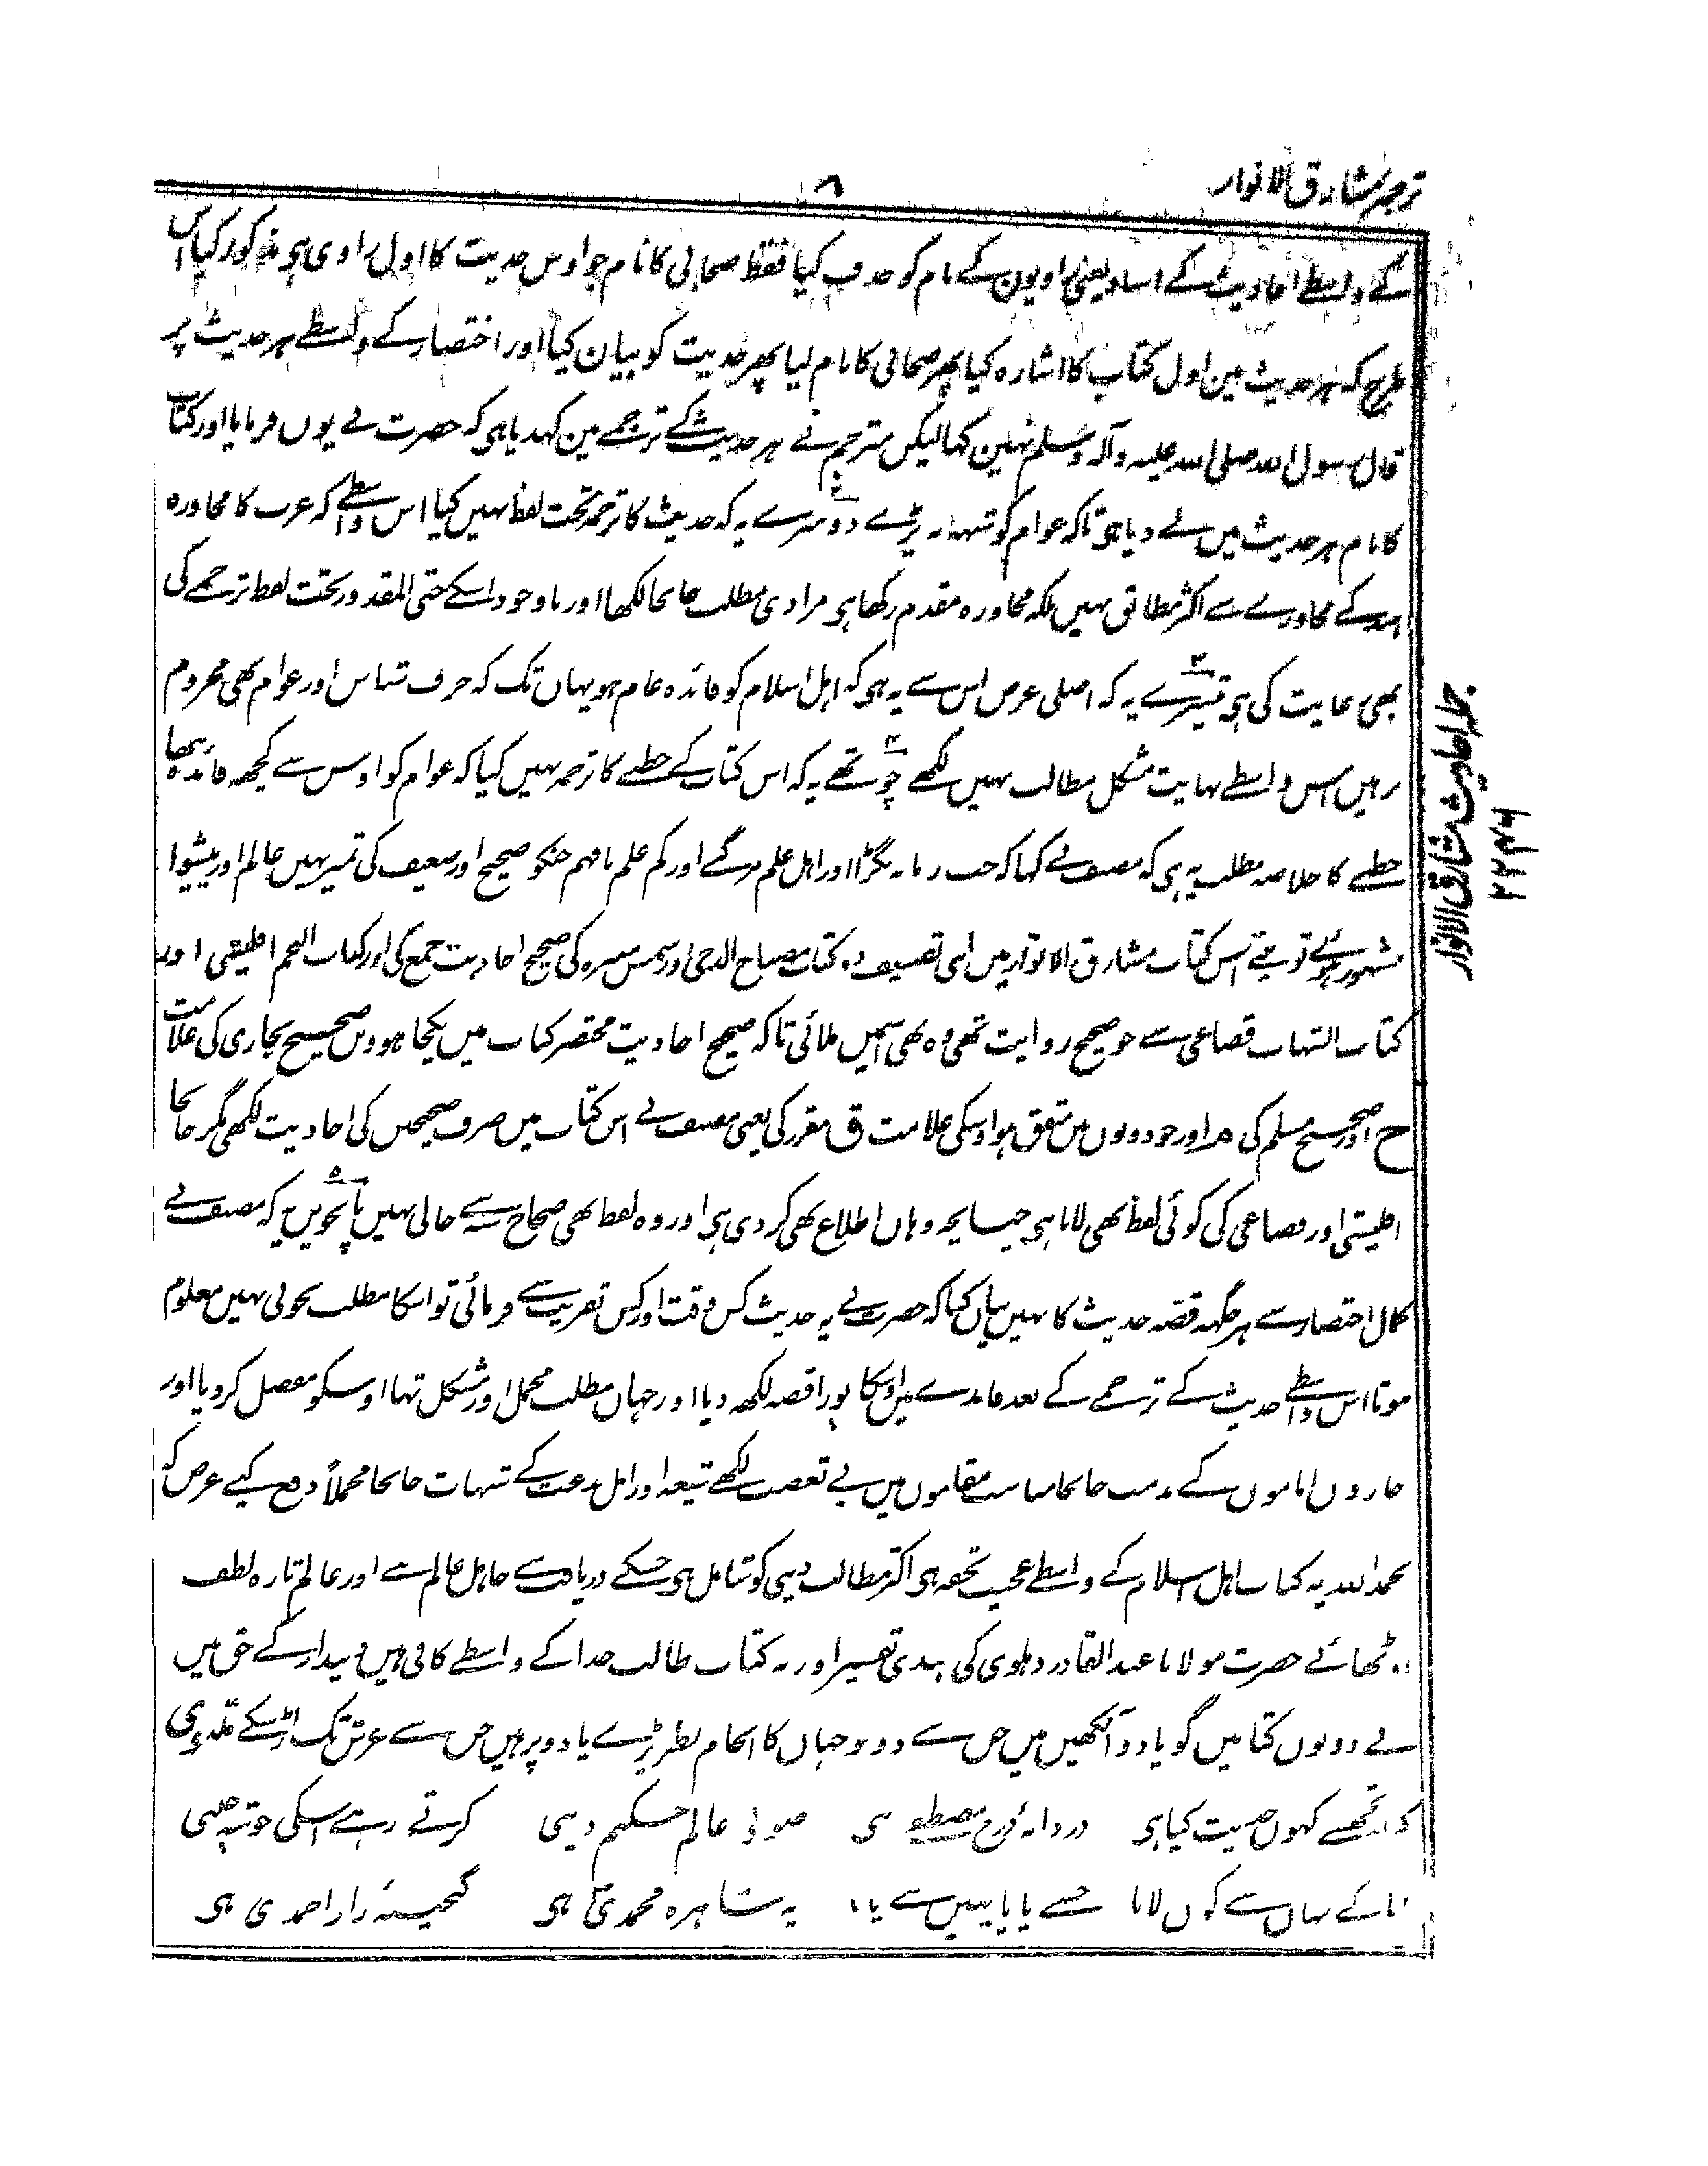 ترجمہ مشارق الانوار
۸
کے واسطے احادیث کے اسناد یعنی راویون کے نام کو حذف کیا فقط صحابی کا نام جو اوس حدیث کا اول راوی ہی مذکور کیا اس
طرح کہ ہر حدیث مین اول کتاب کا اشارہ کیا پھر صحابی کا نام لیا پھر حدیث کو بیان کیا اور اختصار کے واسطے ہر حدیث پر
قال رسول اللہ صلی اللہ علیہ وآلہ وسلم نہین کہا لیکن مترجم نے ہر حدیث کے ترجمے مین کہدیا ہی کہ حضرت نے یوں فرمایا اور کتاب
کا نام ہر حدیث میں لے دیا ہی تاکہ عوام کو شبہہ نہ پڑے دوسرے یہ کہ حدیث کا ترجمہ تحت لفظ نہیں کیا اس واسطے کہ عرب کا محاورہ
ہند کے محاورے سے اکثر مطابق نہیں بلکہ محاورہ مقدم رکھا ہی مرادی مطلب جابجا لکھا اور باوجود اسکے حتی المقدور تحت لفظ ترجمے کی
بھی رعایت کی ہی تیسرے یہ کہ اصلی غرض اس سے یہ ہی کہ اہل اسلام کو فائدہ عام ہو یہاں تک کہ حرف شناس اور عوام بھی محروم نہ
رہیں اس واسطے نہایت مشکل مطالب نہیں لکھے چوتھے یہ کہ اس کتاب کے خطبے کا ترجمہ نہیں کیا کہ عوام کو اوس سے کچھہ فائدہ نہ تھا
خطبے کا خلاصہ مطلب یہ ہی کہ مصنف نے کہا کہ جب زمانہ بگڑا اور اہل علم مر گئے اور کم علم نافہم جنکو صحیح اور ضعیف کی تمیز نہیں عالم اور پیشوا
مشہور ہوئے تو مینے اس کتاب مشارق الانوار میں اپنی تصنیف دو کتاب مصباح الدجی اور شمس منیرہ کی صحیح احادیث جمع کی اور کتاب النجم اقلیشی اور
کتاب الشہاب قضاعی سے جو صحیح روایت تھی وہ بھی اسمیں ملائی تاکہ صحیح احادیث مختصر کتاب میں یکجا ہوویں صحیح بخاری کی علامت
خ اور صحیح مسلم کی م اور جو دونوں میں متفق ہو اوسکی علامت ق مقرر کی یعنی مصنف نے اس کتاب میں صرف صحیحین کی احادیث لکھی مگر جابجا
اقلیشی اور قضاعی کی کوئی لفظ بھی لایا ہی چنانچہ وہاں اطلاع بھی کر دی ہی اور وہ لفظ بھی صحاح سے خالی نہیں پانچویں یہ کہ مصنف نے
کمال اختصار سے ہر جگہہ قصہ حدیث کا نہیں بیان کیا کہ حضرت نے یہ حدیث کس وقت اور کس تقریب سے فرمائی تو اسکا مطلب بخوبی نہیں معلوم
ہوتا اس واسطے حدیث کے ترجمے کے بعد فائدے میں اوسکا پورا قصہ لکھہ دیا اور جہاں مطلب مجمل اور مشکل تھا اوسکو مفصل کر دیا اور
چاروں اماموں کے مذہب جابجا مناسب مقاموں میں بے تعصب لکھے شیعہ اور اہل بدعت کے شبہات جابجا مجملاً دفع کیے غرض کہ
بحمد اللہ یہ کتاب اہل اسلام کے واسطے عجیب تحفہ ہی اکثر مطالب دینی کو شامل ہی جسکے دریافت سے جاہل عالم بنے اور عالم تازہ لطف
اوٹھائے حضرت مولانا عبد القادر دہلوی کی ہندی تفسیر اور یہ کتاب طالب خدا کے واسطے کافی ہیں دیندار کے حق میں
یے دونوں کتابیں گویا دو آنکھیں ہیں جس سے دونو جہاں کا انجام نظر پڑے یا دو پر ہیں جس سے عرش تک اڑ سکے
تجھسے کہوں حدیث کیا ہی دردانۂ درج مصطفوی ہی صوفی عالم حکیم دینی کرتے رہے اسکی خوشہ چینی
یہاں سے کون لایا جسنے پایا یہیں سے پایا یہ شاہرہ محمدی ہی گنجینۂ راز احمدی ہی
جملہ احادیث مشارق الانوار
۲۲۴۶